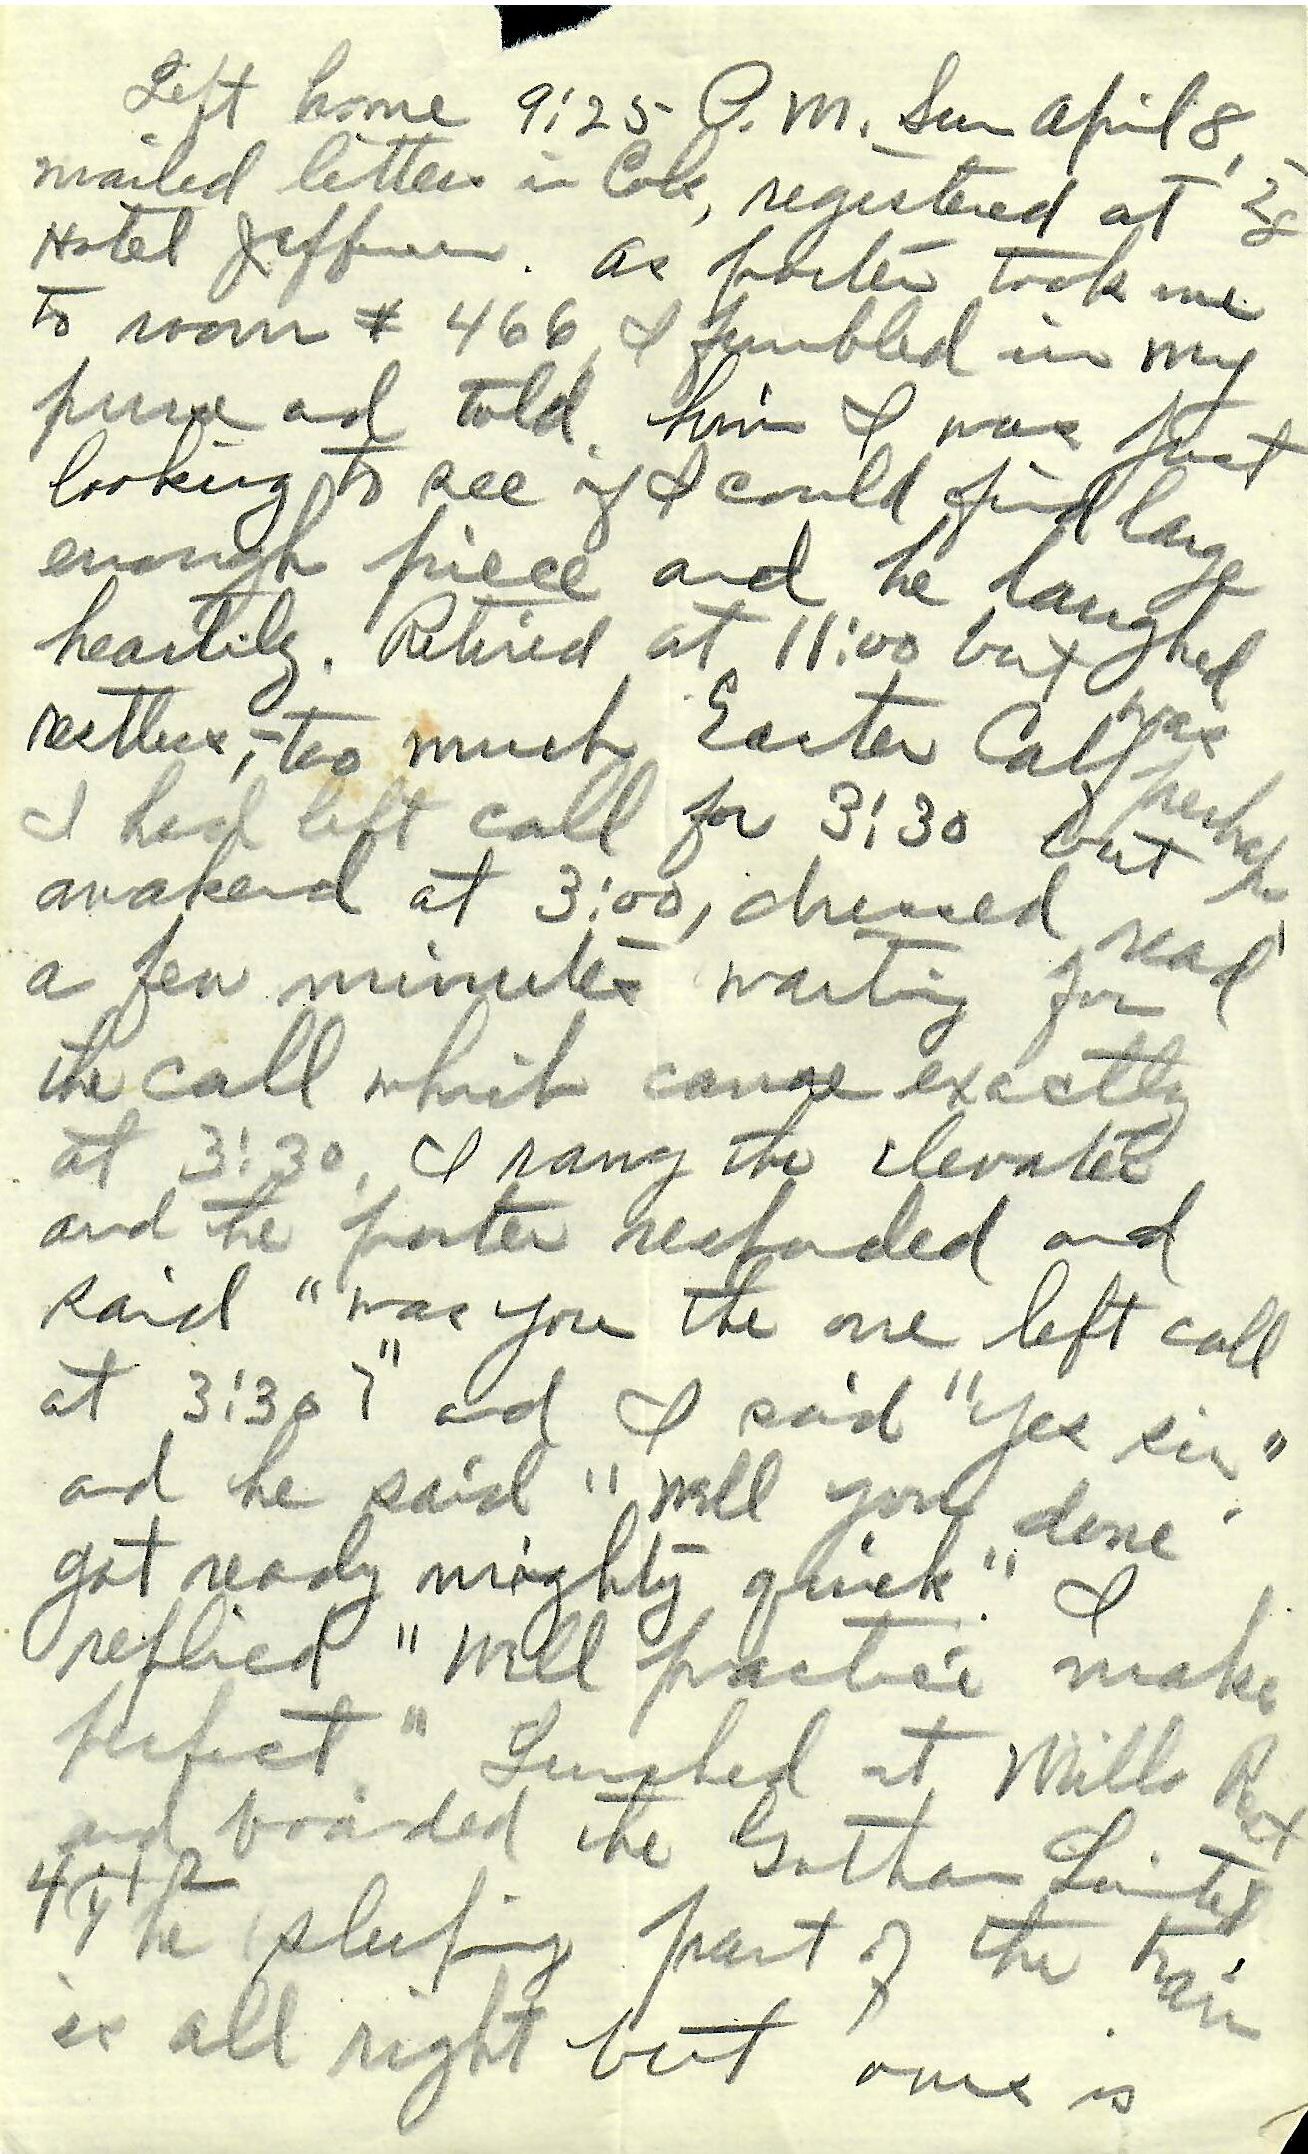 Left home 9:25 P.M. Sun April 8,
mailed letters in Cols, registered at '58
Hotel Jeffrson. As porter took me
to room # 466, I fumbled in my
purse and told him I was just
looking to see if I could find large
enough piece and he laughed
heartily. Retired at 11:00 but was
restless, - too much Easter Calf perhaps
I had left call for 3:30 but
awakend at 3:00, dressed read
a few minutes waiting for
the call which came exactly
at 3:30. I rang the elevator
and the porter responded and
said "was you the one left call
at 3:30?" and I said "yes sir"
and he said "well you done
got ready mighty quick." I
replied "Well practice makes
perfect." Lunched at Mills Rest
and boarded the Gotham Limited
4:12
The sleeping part of the train
is all right but ours is